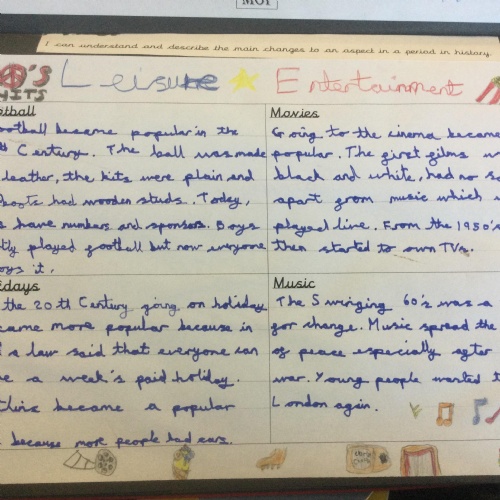 MOI
I can understand and describe the main changes to an aspect in a period in history.
'S Leisure Entertainment
HITS
Football became popular in the
Century. The ball was made
leather, the kits were plain and
boots had wooden studs. Today,
have numbers and sponsors. Boys
played football but now everyone
it.
Movies
Going to the cinema became
popular. The first films
black and white, had no
apart from music which
played live. From the 1950's
then started to own TVs.
the 20th Century going on holiday
became more popular because in
a law said that everyone can
a week's paid holiday.
became a popular
because more people had cars.
Music
The Swinging 60's was a
for change. Music spread the
of peace especially after
war. Young people wanted
London again.